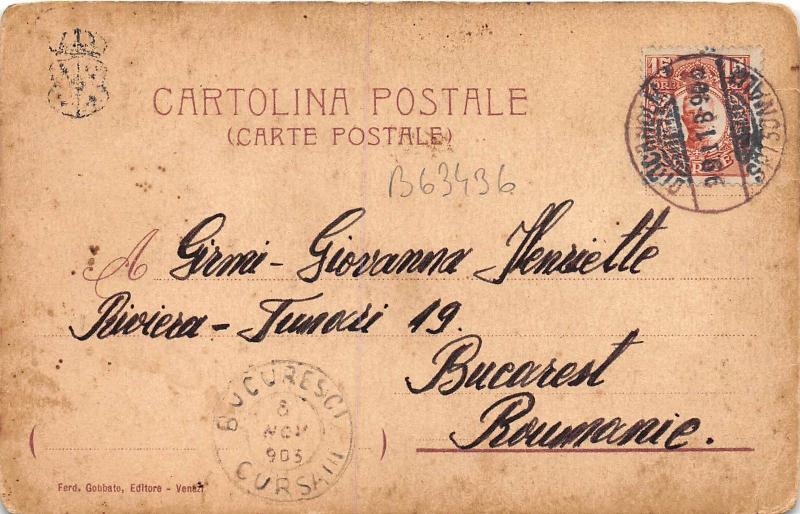 CARTOLINA POSTALE
(CARTE POSTALE)
15 15
ÖRE
B63436
A Girmi - Giovanna Henriette
Riviera - Tunari 19.
Bucarest
Roumanie.
BUCURESCI
8
NOV
905
CURSA III
Ferd. Gobbato, Editore - Venezi